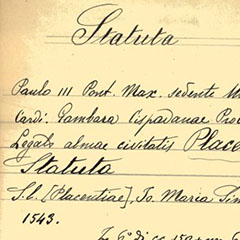 Statuta
Paulo III Pont. Max. sedente
Cardi. Gambara Cispadanae Prov
Legato almae civitatis Place
Statuta
S. l. [Placentiae], Jo. Maria Sim
1543.
In